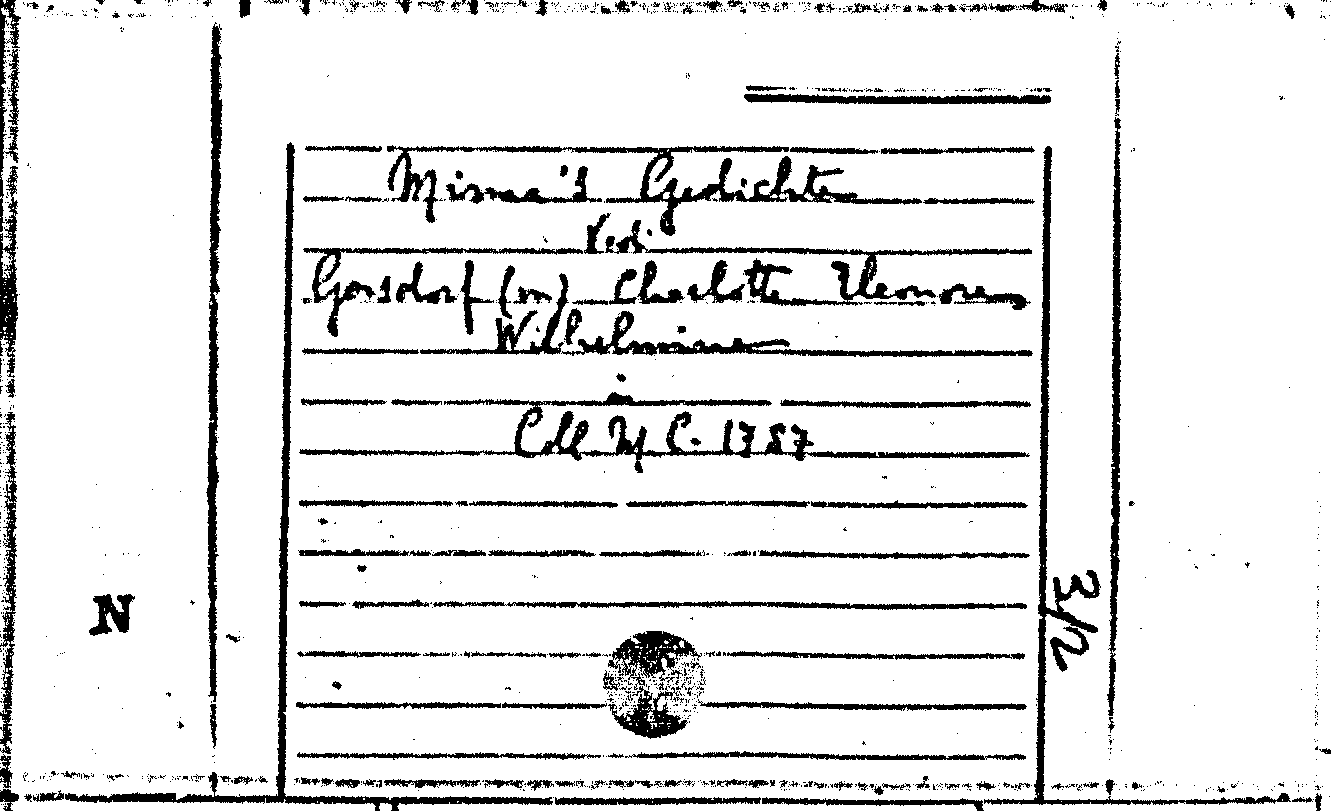 Minna's Gedichte
Vedi
Gersdorf (von) Charlotte Eleonore
Wilhelmine
in
Coll. M. C. 1787
N
3/2